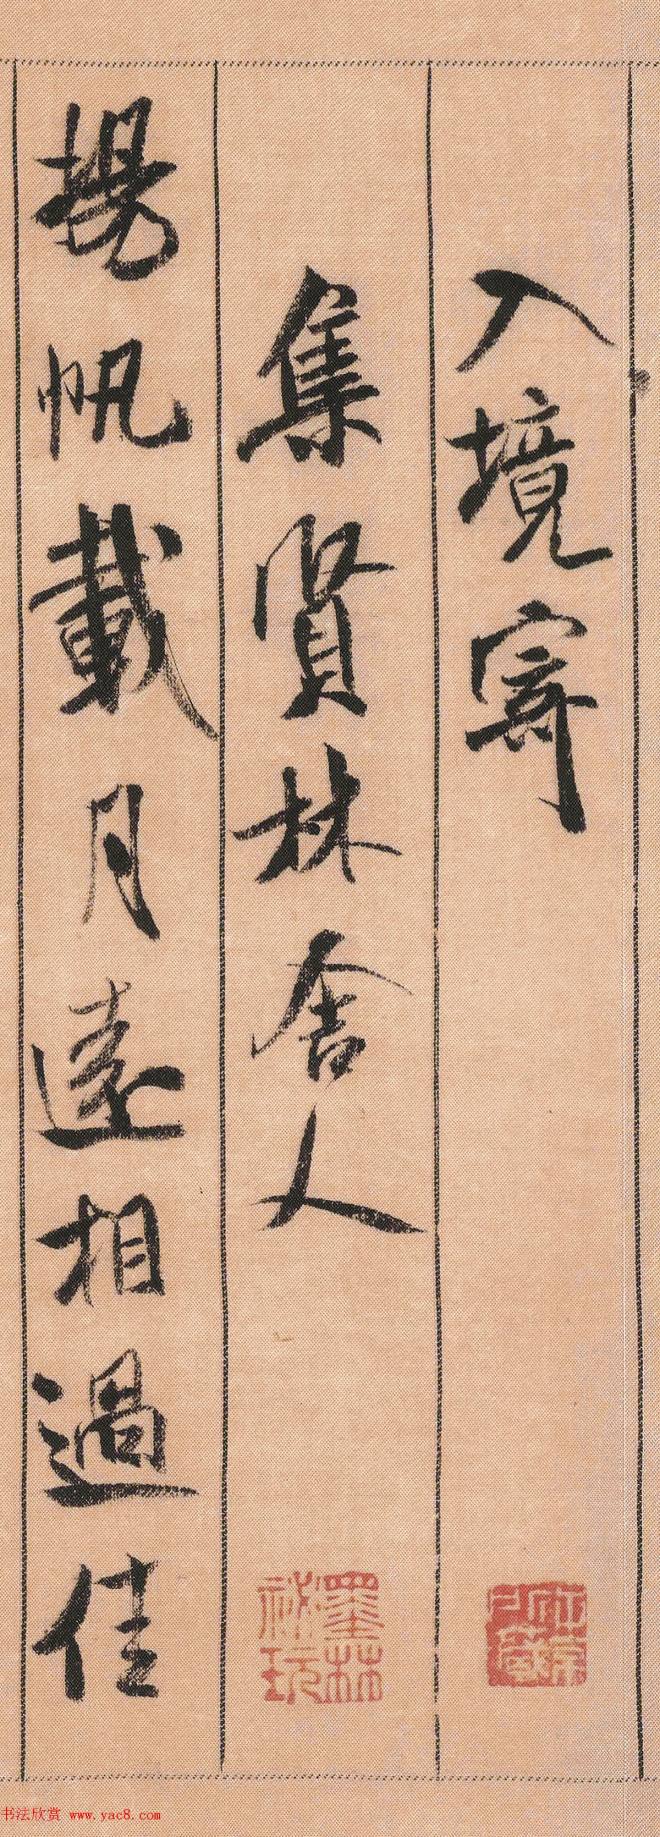 入境寄
集賢林舍人
揚帆載月遠相過佳
墨林
祕玩
书法欣赏 www.yac8.com